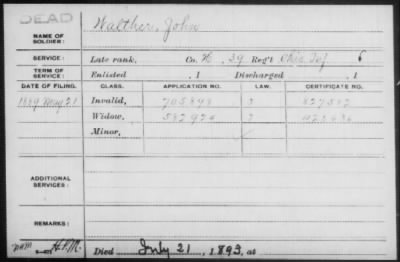 DEAD
NAME OF SOLDIER: Walther, John
SERVICE: Late rank, Co. H, 39 Reg't Ohio Inf 6
TERM OF SERVICE: Enlisted , 1 Discharged , 1
DATE OF FILING. CLASS. APPLICATION NO. LAW. CERTIFICATE NO.
1889 May 21 Invalid, 705898
Widow, 582924
Minor,
ADDITIONAL SERVICES:
REMARKS:
H.P.M. Died July 21, 1893, at